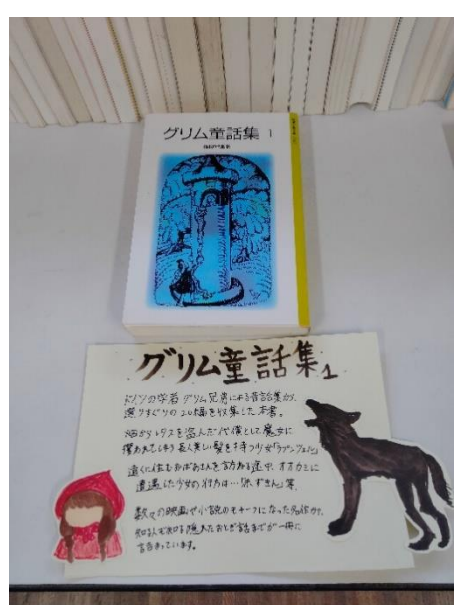 グリム童話集 1
グリム童話集1
ドイツの学者グリム兄弟による昔話集から、
選りすぐりの20編を収集した本書。
畑からレタスを盗んだ代償として魔女に
攫われてしまう長く美しい髪を持つ少女「ラプンツェル」
遠くに住むおばあさんを訪ねる途中、オオカミに
遭遇した少女の行方は…「赤ずきん」等、
数々の映画や小説のモチーフになった名作から、
知る人ぞ知る隠れたおとぎ話までが一冊に